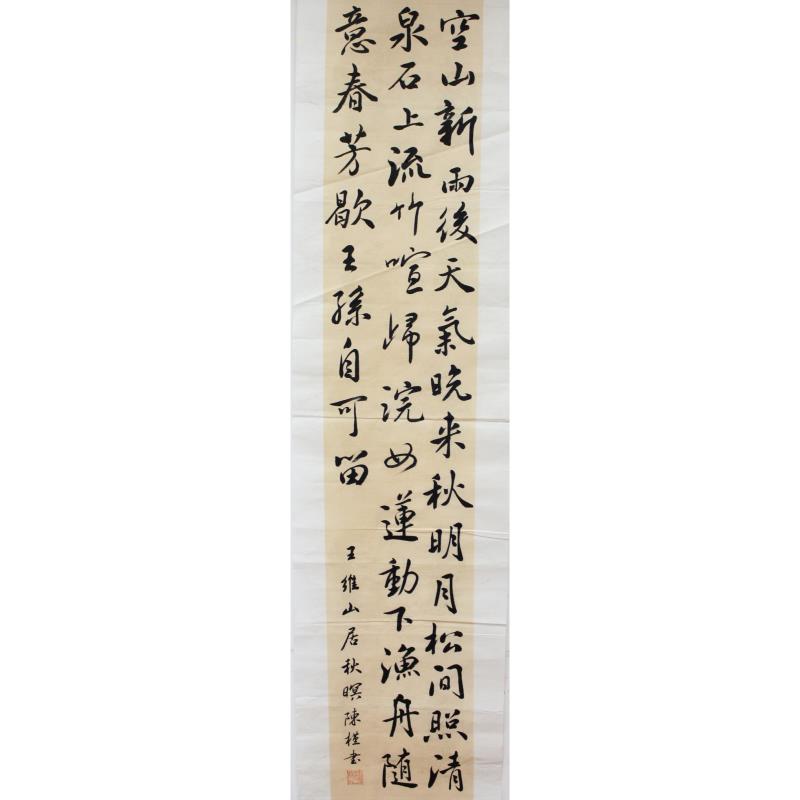 空山新雨後天氣晚来秋明月松间照清
泉石上流竹喧歸浣女蓮動下漁舟随
意春芳歇王孫自可留
王維山居秋暝陳槿書